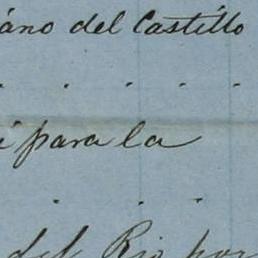 ano del Castillo
para la
del Rio por